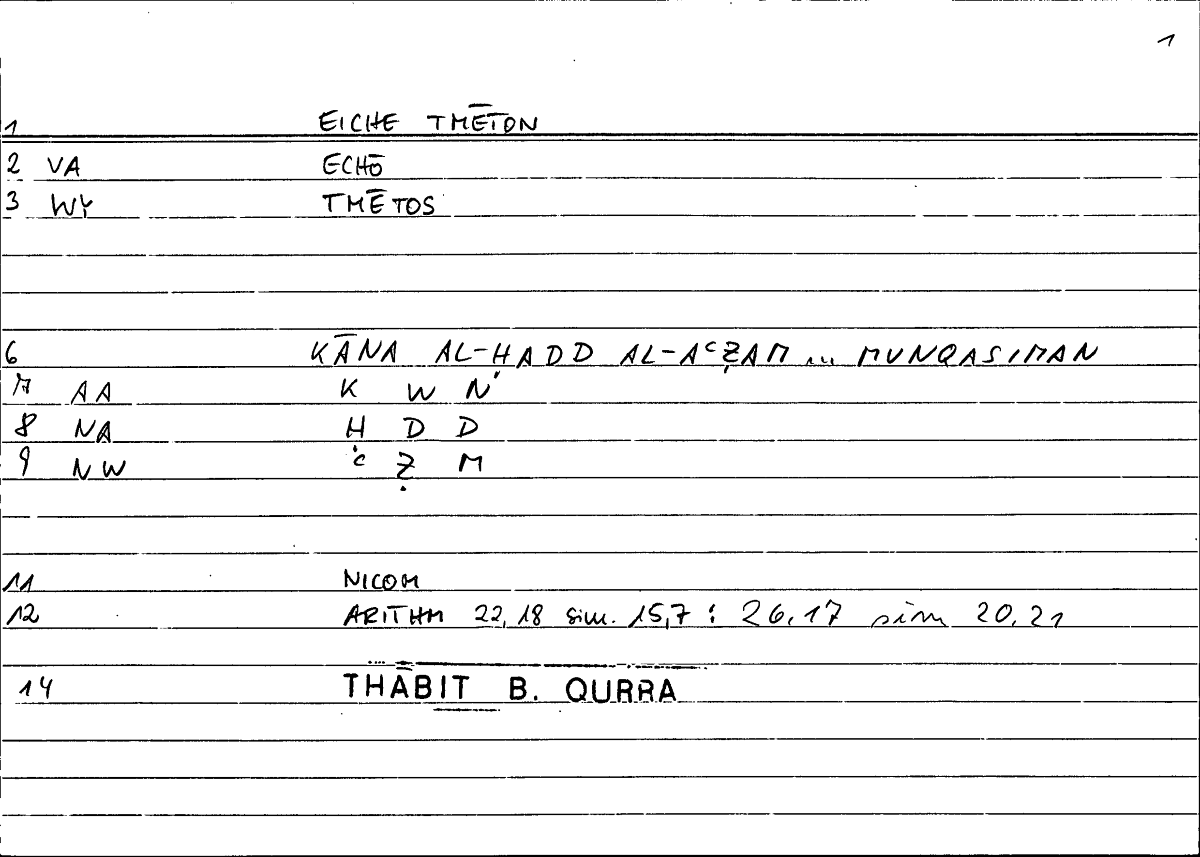 1
1 EICHE TMĒTON
2 VA ECHŌ
3 WY TMĒTOS
6 KĀNA AL-ḤADD AL-AᶜẒAM ... MUNQASIMAN
7 AA K W N
8 NA Ḥ D D
9 NW ᶜ Ẓ M
11 NICOM
12 ARITHM 22,18 sim. 15,7 : 26,17 sim 20,21
14 THĀBIT B. QURRA